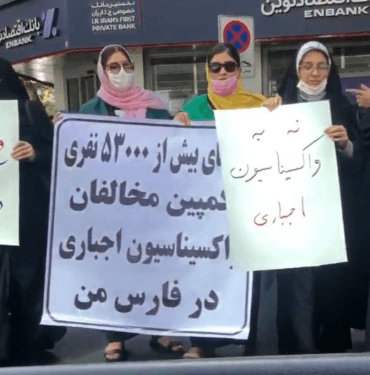 بانک اقتصاد نوین
ENBANK
نخستین بانک
خصوصی ج.ا.ایران
I.R. IRAN'S FIRST
PRIVATE BANK
اقتصاد نوین
ENBANK
بیش از ۵۳۰۰۰ نفری
کمپین مخالفان
واکسیناسیون اجباری
در فارس من
نه به
واکسیناسیون
اجباری